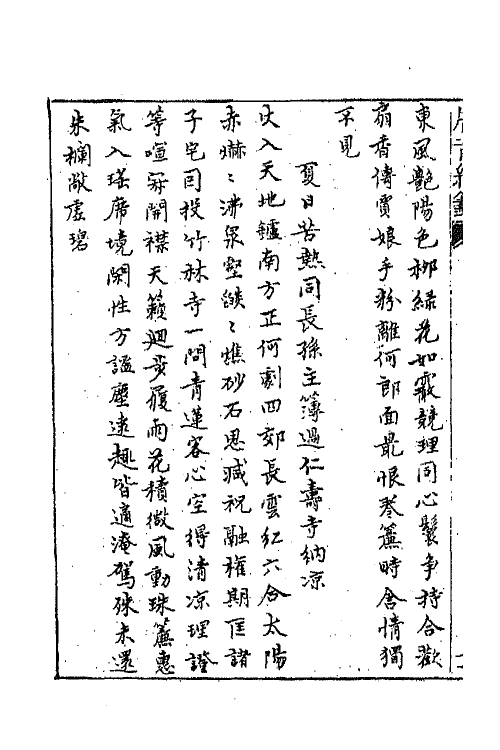 東風艷陽色柳綠花如霰競理同心鬟争持合歡
扇香傳賈娘手粉離何郎面最恨卷簾時含情獨
不見
夏日苦熱同長孫主簿過仁壽寺納凉
火入天地鑪南方正何劇四郊長雲紅六合太陽
赤爀〻沸泉壑焰〻燋砂石思減祝融權期匡諸
子宅因投竹林寺一問青蓮客心空得清凉理證
等喧寂開襟天籟廻步履雨花積微風動珠簾惠
氣入瑤席境閑性方謐塵遠趣皆適淹駕殊未還
朱欄敞虛碧